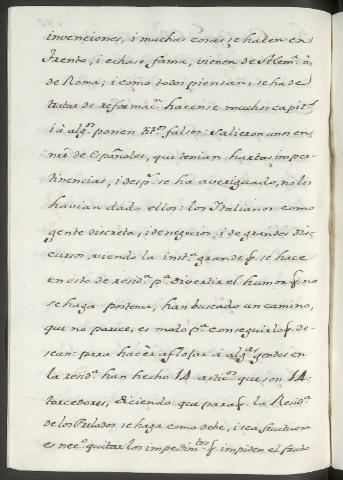 invenciones, i muchas cosas se hacen en
Trento, i echase fama, vienen de Alem.ª ò
de Roma; i como todos piensan, se ha de
tratar de reformac.ⁿ hacense muchos capit.ˢ
i à alg.ᵒˢ ponen tit.ᵒˢ falsos: salieron unos en
nře de Españoles, que tenian hartas imper-
tinencias, i desp.ˢ se ha averiguado, no los
havian dado ellos: los Italianos como
gente discreta, i de negocios, i de grandes dis
cursos, viendo la inst.ª grande q̃. se hace
en esto de resid.ª p.ª divertir el humor q̃. no
se haga postema, han buscado un camino,
que no parece, es malo p.ª conseguir lo q̃. de-
sean: para hacèr afloxar à alg.ᵃˢ gentes en
la resid.ª han hecho 14 artic.ᵒˢ que son 14
torcedores, diciendo: que para q̃. la Resid.ª
de los Prelados se haga como debe, i sea fructuosa
es nec.º quitar los impedim.ᵗᵒˢ q̃. impiden el fruto